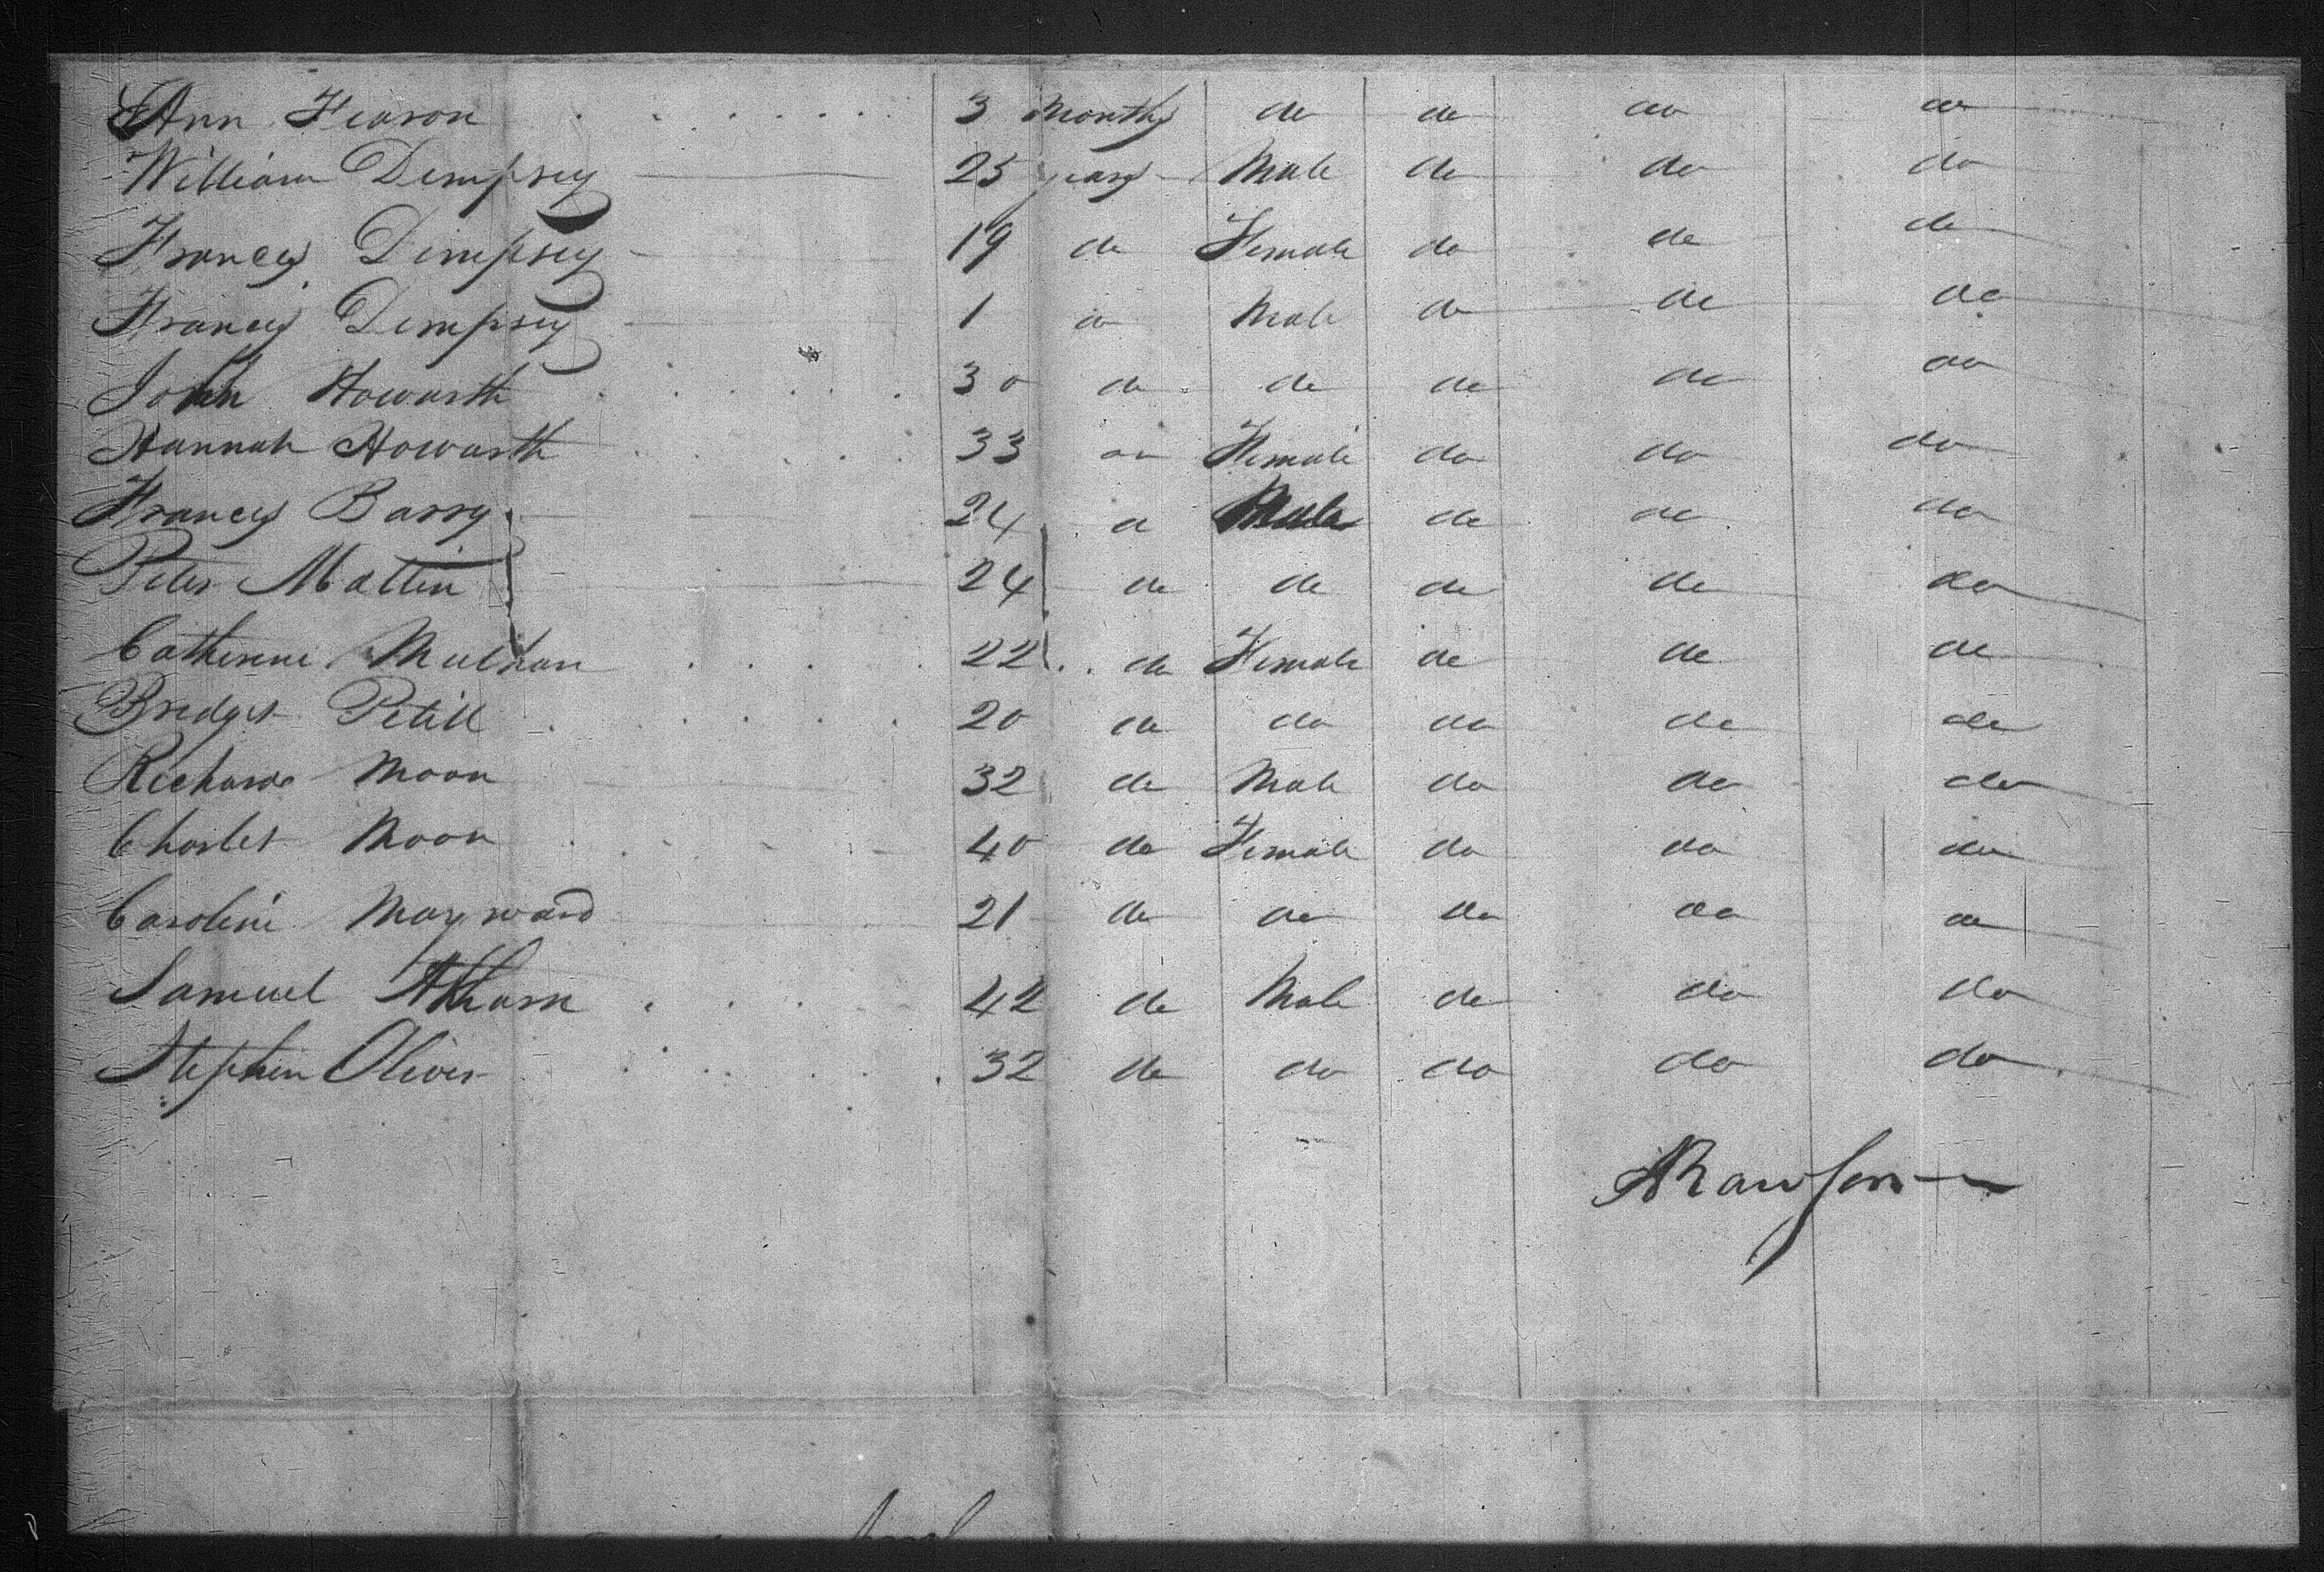 Ann Fearon 3 Months do do do do
William Dempsey 25 years Male do do do
Francis Dempsey 19 do Female do do do
Francis Dempsey 1 do Male do do do
John Howarth 30 do do do do do
Hannah Howarth 33 do Female do do do
Francis Barry 24 do Male do do do
Peter Mattin 24 do do do do do
Catherine 22 do Female do do do
Bridget 20 do do do do do
Richard Moon 32 do Male do do do
Charles Moon 40 do Female do do do
Caroline Mayward 21 do do do do do
Samuel 42 do Male do do do
Stephen Oliver 32 do do do do do
Rawson